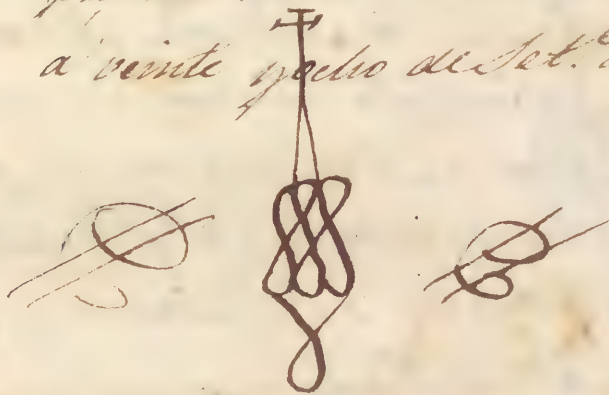 a veinte y ocho de Set.e